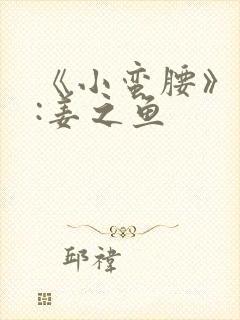 《小蛮腰》
:姜之鱼
邱祎